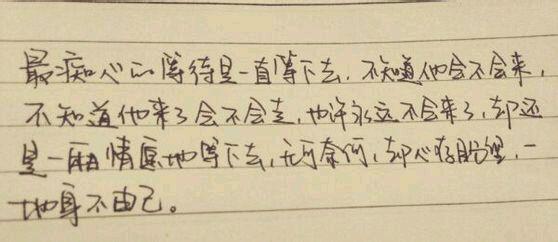 最痴心的等待是一直等下去,不知道他会不会来,
不知道他来了会不会走,也许永远不会来了,却还
是一厢情愿地等下去,无可奈何,却心存盼望,一
地身不由己。